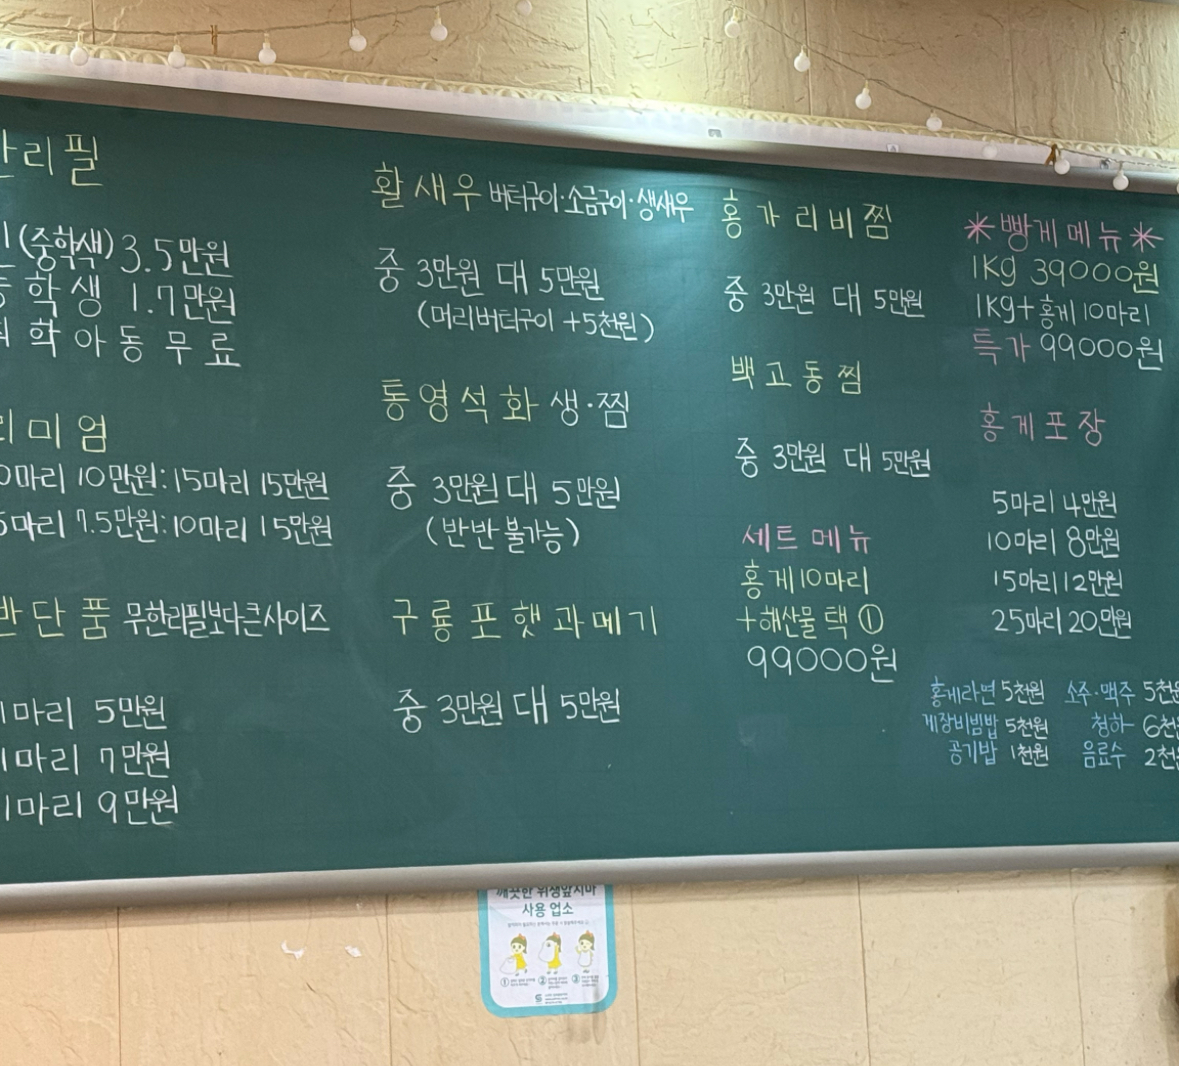 한리필
(중학생) 3.5만원
등학생 1.7만원
취학아동무료
리미엄
0마리 10만원:15마리 15만원
5마리 7.5만원:10마리 15만원
반단품 무한리필보다큰사이즈
1마리 5만원
1마리 7만원
1마리 9만원
활새우 버터구이·소금구이·생새우
중 3만원 대 5만원
(머리버터구이 +5천원)
통영석화 생·찜
중 3만원 대 5만원
(반반불가능)
구룡포햇과메기
중 3만원 대 5만원
홍가리비찜
중 3만원 대 5만원
백고동찜
중 3만원 대 5만원
세트메뉴
홍게10마리
+해산물 택 ①
99000원
*빵게메뉴*
1Kg 39000원
1Kg+홍게10마리
특가 99000원
홍게포장
5마리 4만원
10마리 8만원
15마리 12만원
25마리 20만원
홍게라면 5천원 소주·맥주 5천원
게장비빔밥 5천원 청하 6천원
공기밥 1천원 음료수 2천원
깨끗한 위생앞치마
사용 업소